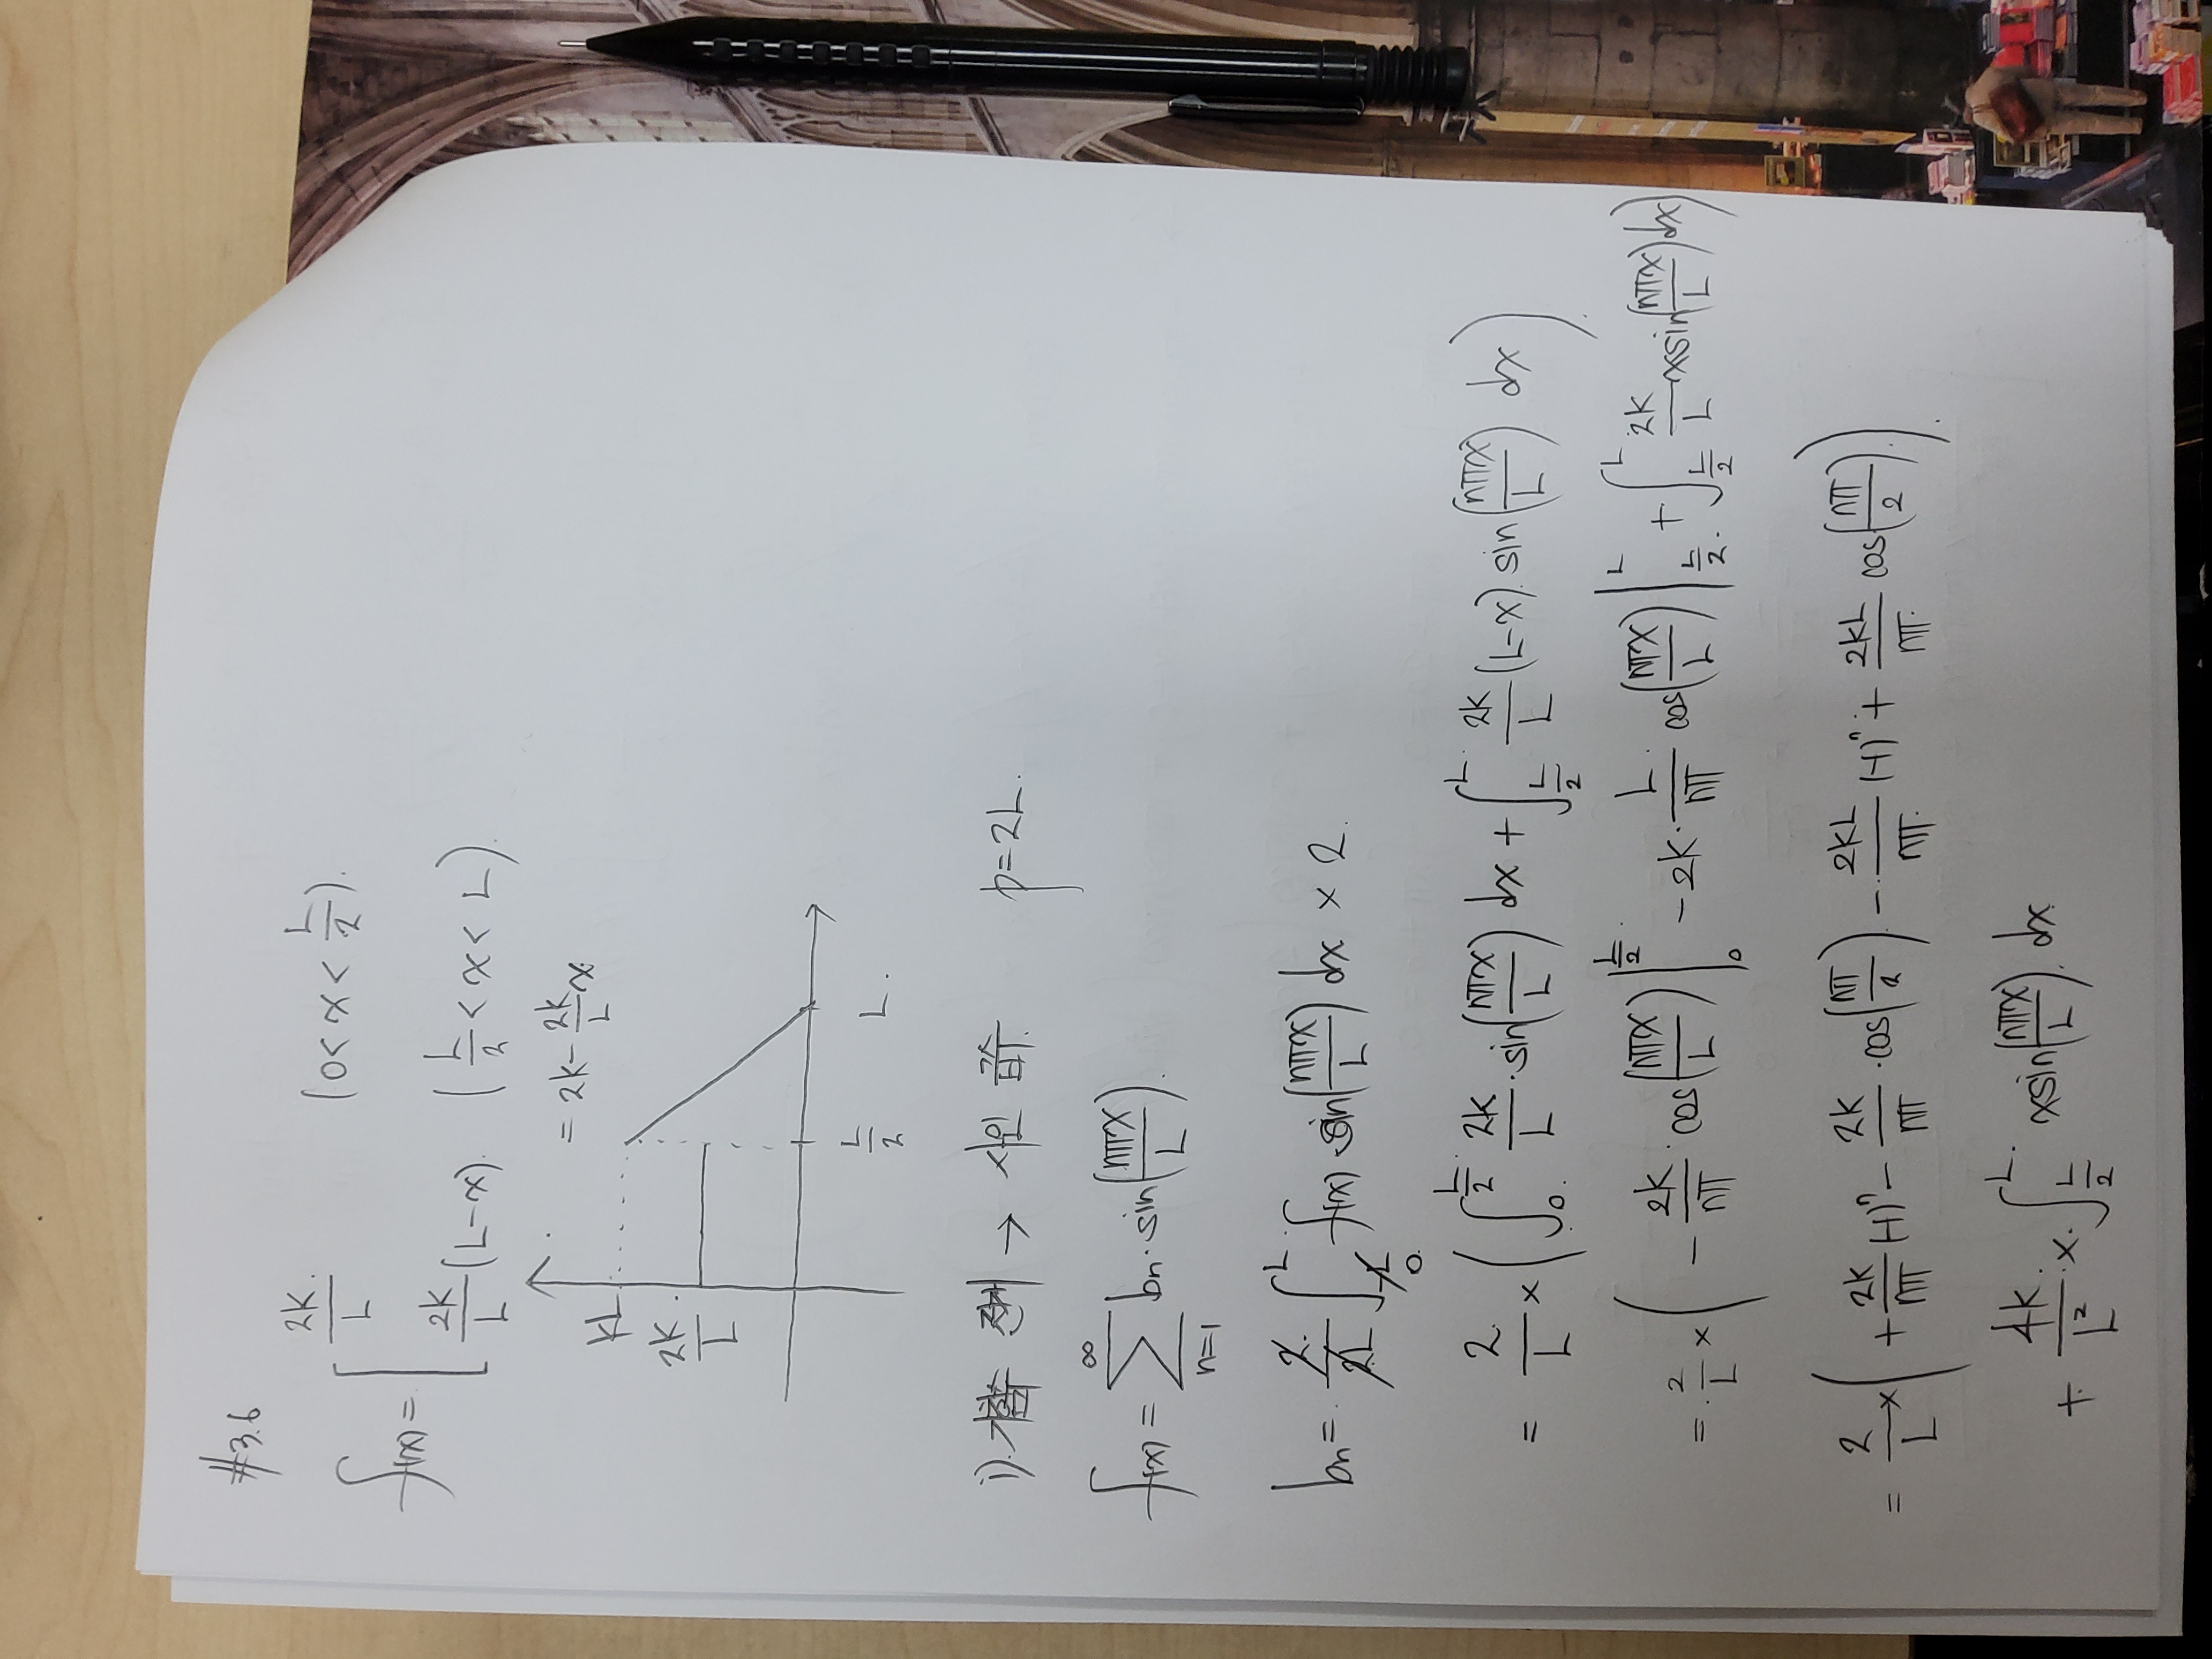 #3.6
f(x) = [ 2K/L (0<x<L/2).
2K/L (L-x). (L/2<x<L).
= 2K - 2K/L x.
KL
2K/L
L/2 L.
전개 → 사인 급수. p=2L.
f(x) = ∑_{n=1}^{∞} bn·sin(nπx/L).
bn = 2/2L ∫_0^L f(x) sin(nπx/L) dx × 2.
= 2/L × (∫_0^{L/2} 2K/L · sin(nπx/L) dx + ∫_{L/2}^L 2K/L (L-x) · sin(nπx/L) dx).
= 2/L × ( - 2K/nπ · cos(nπx/L) |_0^{L/2} - 2K · L/nπ cos(nπx/L) |_{L/2}^L + ∫_{L/2}^L 2K/L xsin(nπx/L) dx)
= 2/L × ( + 2K/nπ (-1)^n - 2K/nπ · cos(nπ/2) ) - 2KL/nπ (-1)^n + 2KL/nπ cos(nπ/2) ).
+ 4K/L² × ∫_{L/2}^L xsin(nπx/L) dx.